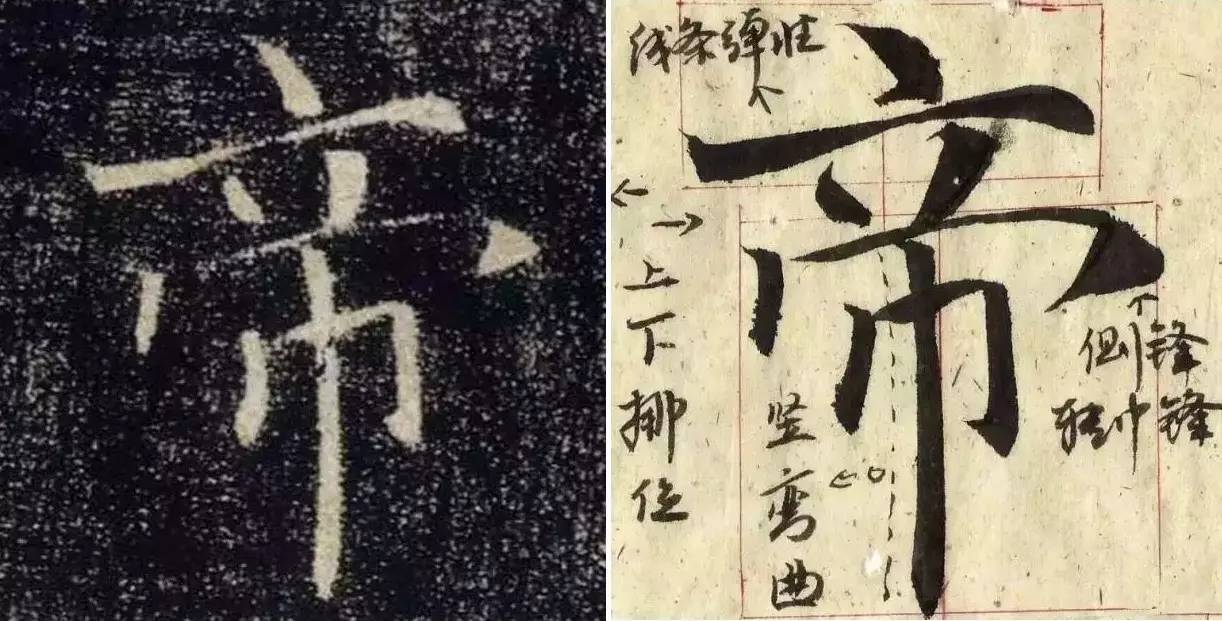 帝
线条弹性
帝
上下挪位
竖弯曲
侧锋
转中锋